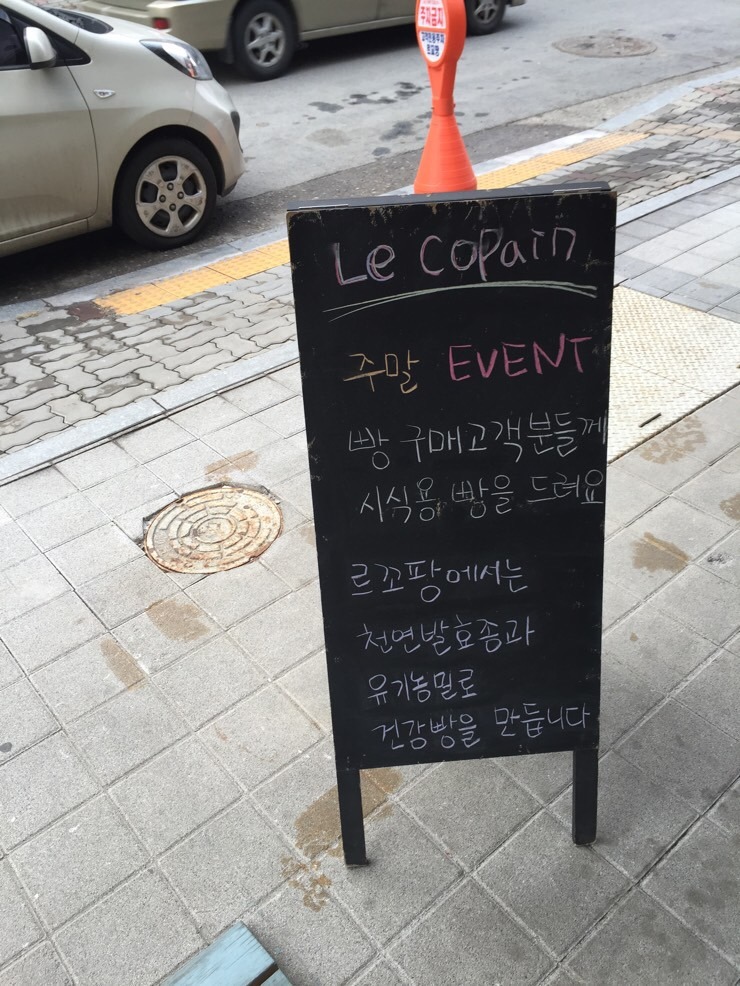 주차금지
Le copain
주말 EVENT
빵 구매고객분들께
시식용 빵을 드려요
르꼬팡에서는
천연발효종과
유기농밀로
건강빵을 만듭니다